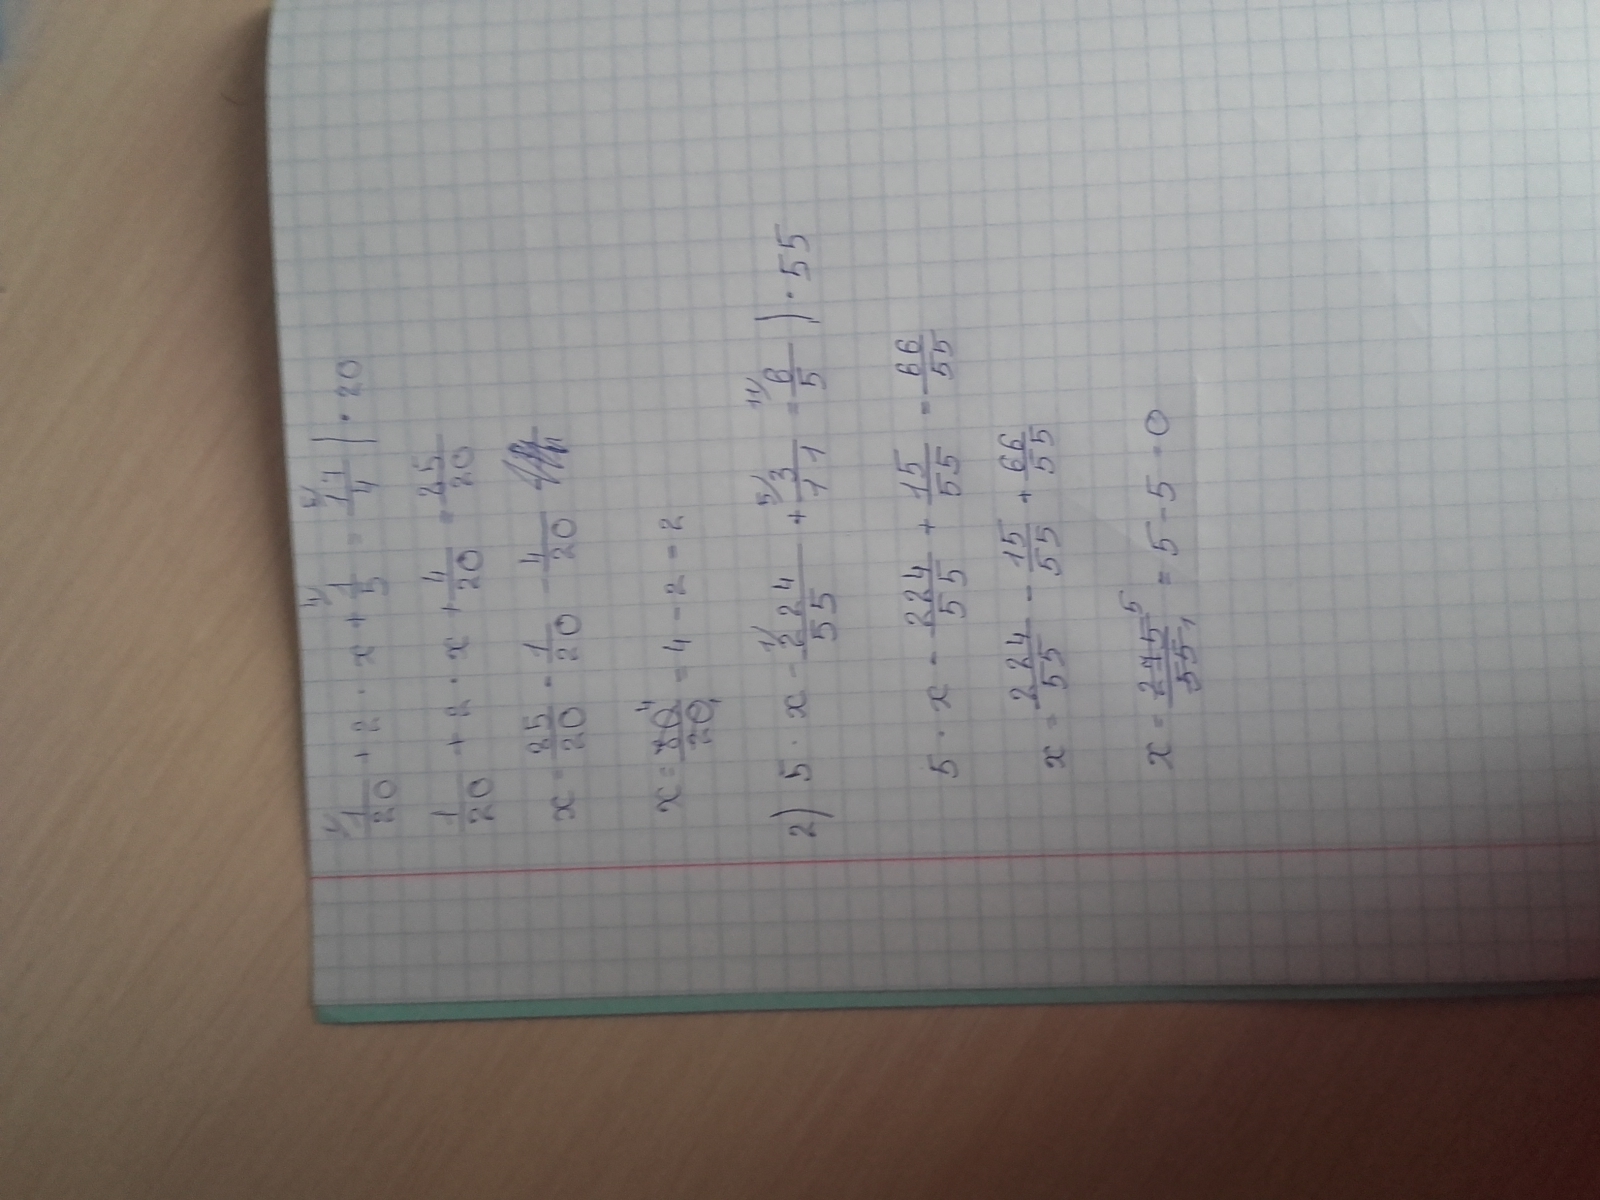 1/20 + 2 · x + 1/5 = 11/4 | · 20
1/20 + 2 · x + 4/20 = 25/20
x = 25/20 - 1/20 - 4/20
x = 80/20 = 4 - 2 = 2
2) 5 · x - 224/55 + 3/11 = 6/5 | · 55
5 · x - 224/55 + 15/55 = 66/55
x = 224/55 - 15/55 + 66/55
x = 275/55 = 5 - 5 = 0